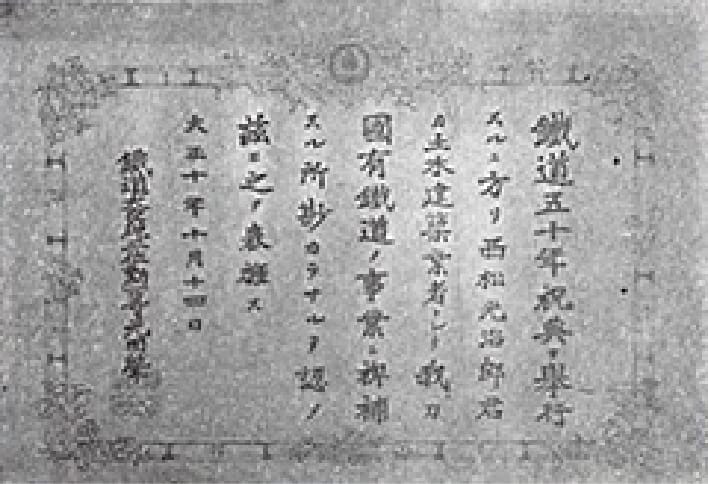 鐵道五十年祝典ヲ擧行
スルニ方リ西松光治郎君
カ土木建築業者トシテ我カ
國有鐵道ノ事業ニ裨補
スル所尠カラサルヲ認メ
茲ニ之ヲ表旌ス
大正十年十月十四日
鐵道大臣